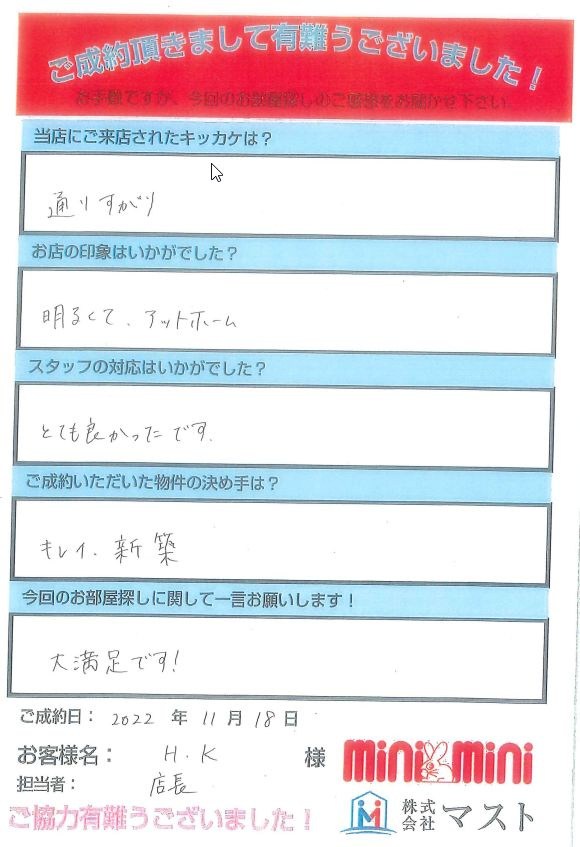 ご成約頂きまして有難うございました！
お手数ですが、今回のお部屋探しのご感想をお聞かせ下さい。
当店にご来店されたキッカケは？
通りすがり
お店の印象はいかがでした？
明るくて、アットホーム
スタッフの対応はいかがでした？
とても良かったです.
ご成約いただいた物件の決め手は？
キレイ、新築
今回のお部屋探しに関して一言お願いします！
大満足です!
ご成約日： 2022 年 11 月 18 日
お客様名： H.K 様
担当者： 店長
mini mini
ご協力有難うございました！
株式会社 マスト